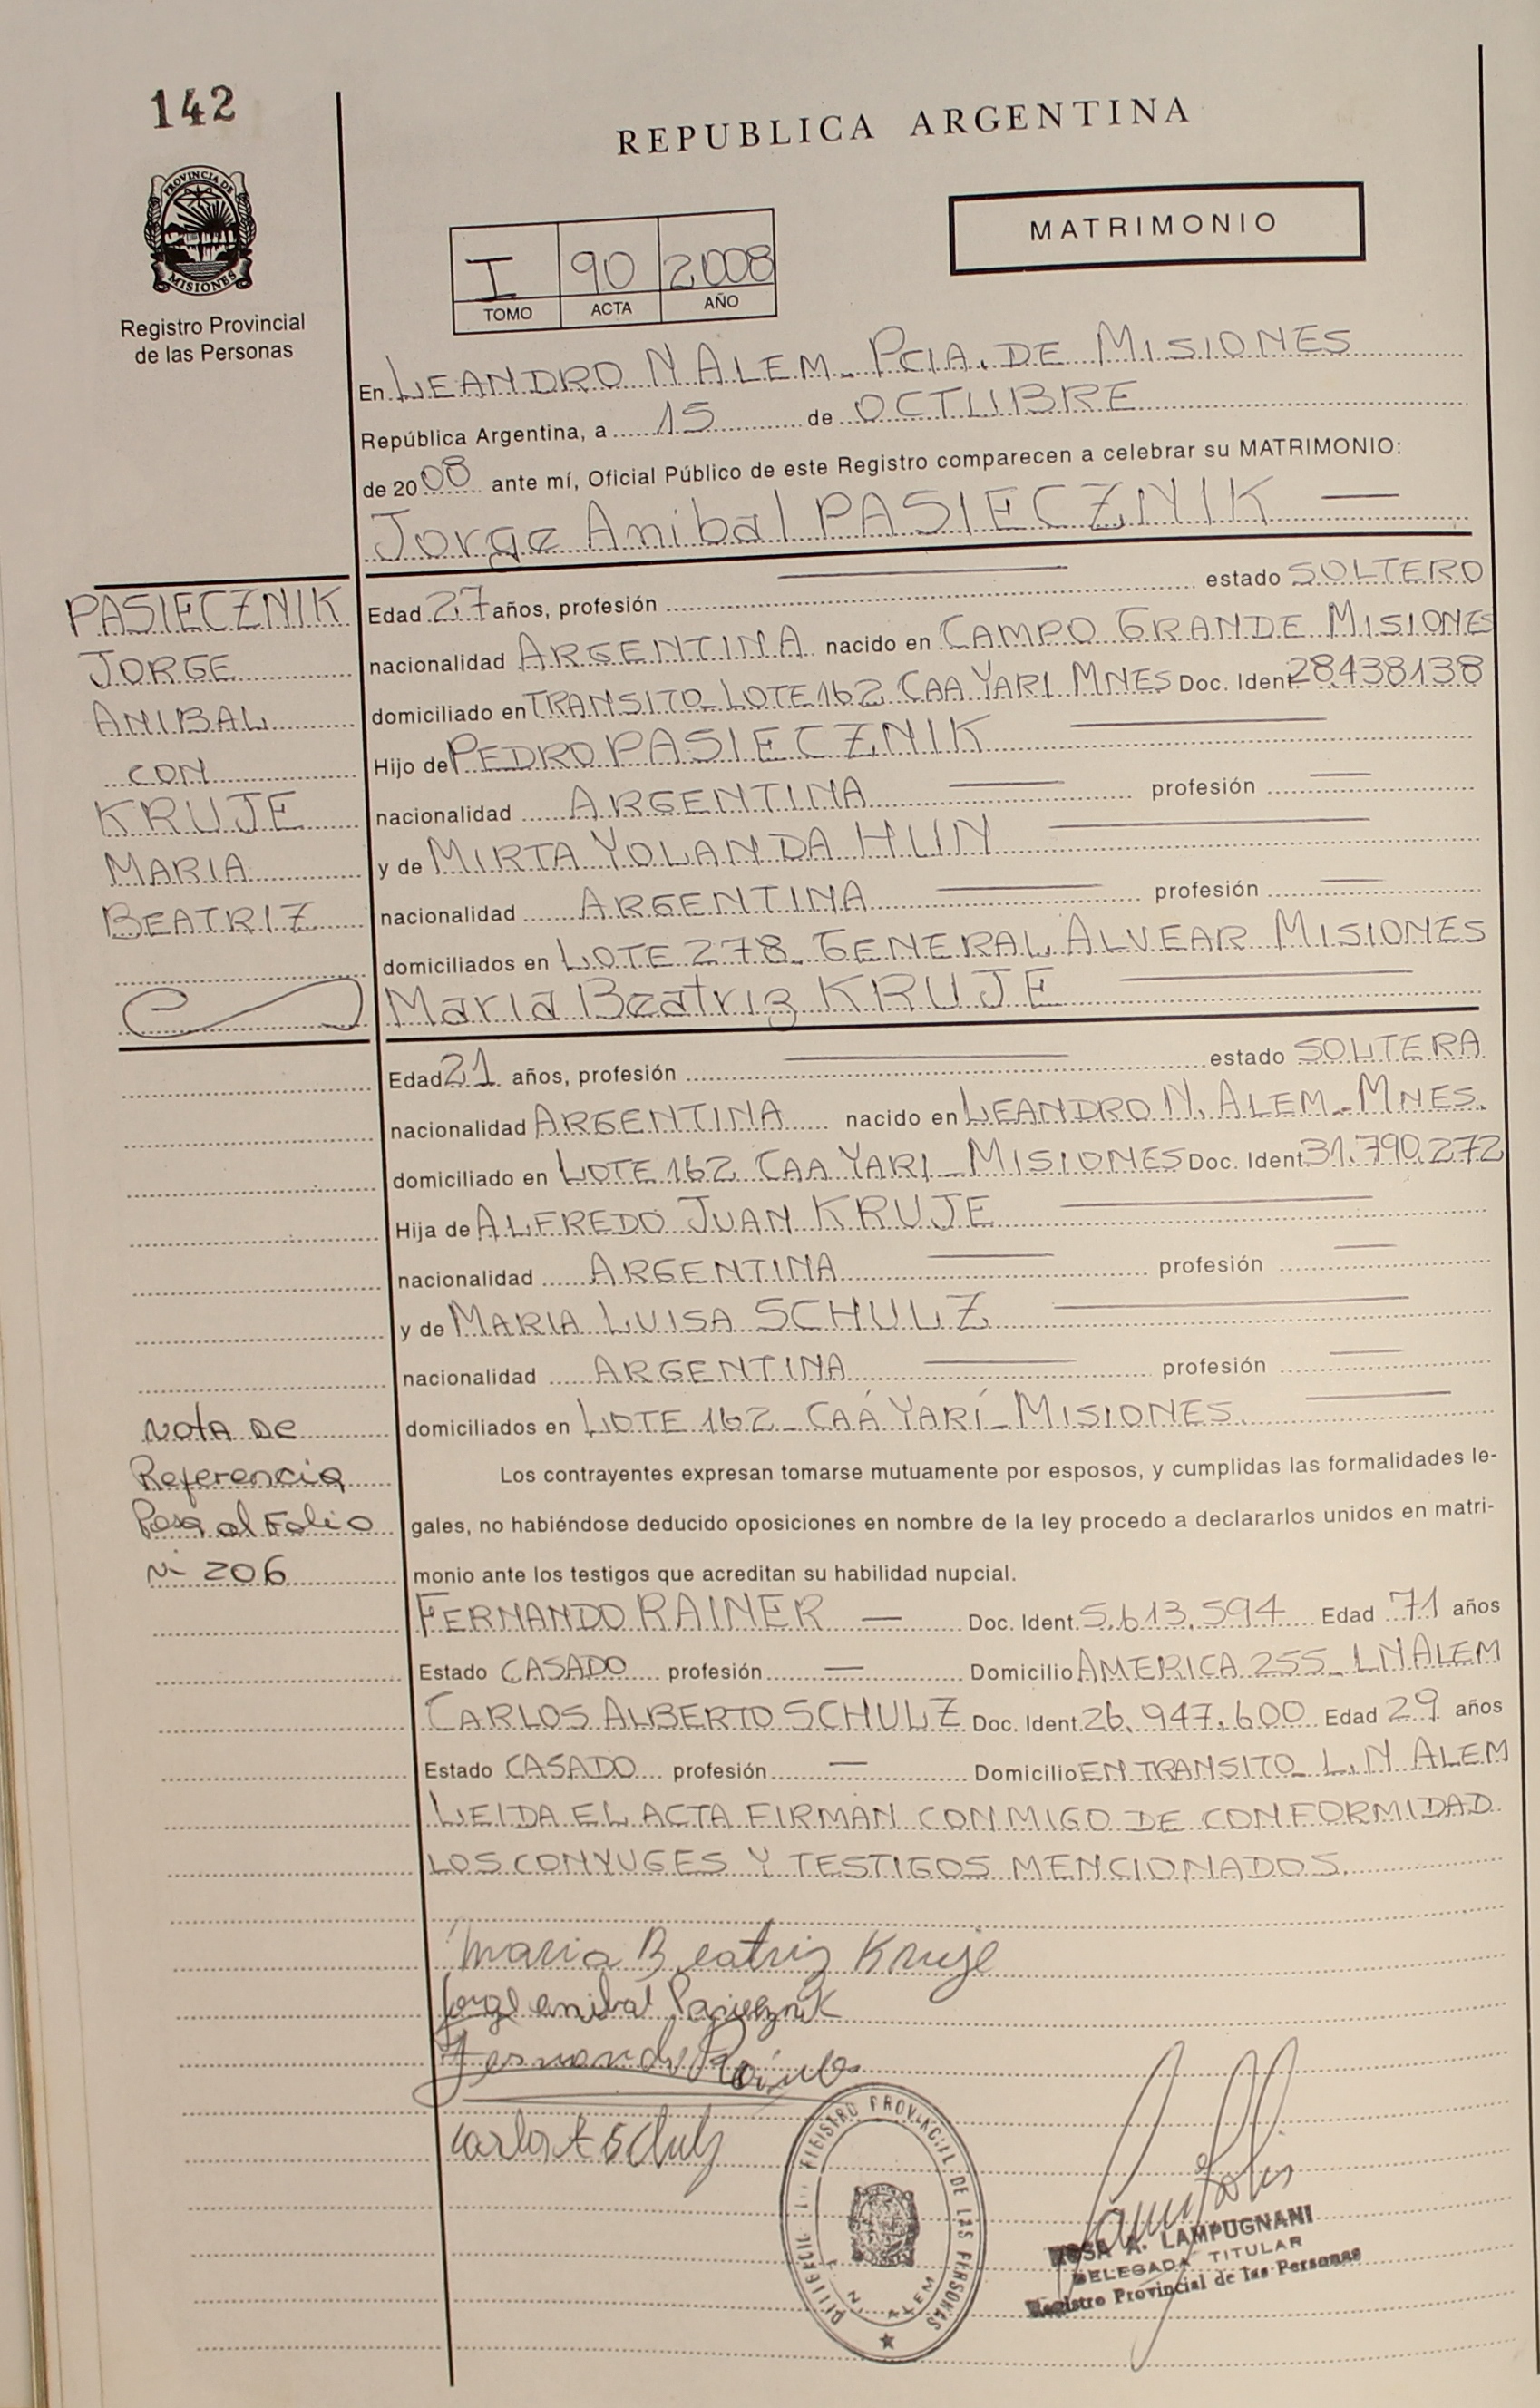 142
REPUBLICA ARGENTINA
PROVINCIA DE
MISIONES
Registro Provincial
de las Personas
MATRIMONIO
I 90 2008
TOMO ACTA AÑO
En LEANDRO N ALEM_ PCIA. DE MISIONES
República Argentina, a 15 de OCTUBRE
de 2008 ante mí, Oficial Público de este Registro comparecen a celebrar su MATRIMONIO:
Jorge Anibal PASIECZNIK —
PASIECZNIK
JORGE
ANIBAL
CON
KRUJE
MARIA
BEATRIZ
Edad 27 años, profesión — estado SOLTERO
nacionalidad ARGENTINA nacido en CAMPO GRANDE MISIONES
domiciliado en TRANSITO_ LOTE 162 CAA YARI MNES Doc. Ident. 28.438138
Hijo de PEDRO PASIECZNIK —
nacionalidad ARGENTINA — profesión —
y de MIRTA YOLANDA HUN —
nacionalidad ARGENTINA — profesión —
domiciliados en LOTE 278_ GENERAL ALVEAR MISIONES
Maria Beatriz KRUJE —
Edad 21 años, profesión — estado SOLTERA
nacionalidad ARGENTINA nacido en LEANDRO N. ALEM_ MNES.
domiciliado en LOTE 162 CAA YARI_ MISIONES Doc. Ident. 31.790.272
Hija de ALFREDO JUAN KRUJE —
nacionalidad ARGENTINA — profesión —
y de MARIA LUISA SCHULZ —
nacionalidad ARGENTINA — profesión —
domiciliados en LOTE 162_ CAÁ YARÍ_ MISIONES. —
NOTA DE
Referencia
Pasa al Folio
Nº 206
Los contrayentes expresan tomarse mutuamente por esposos, y cumplidas las formalidades le-
gales, no habiéndose deducido oposiciones en nombre de la ley procedo a declararlos unidos en matri-
monio ante los testigos que acreditan su habilidad nupcial.
FERNANDO RAINER — Doc. Ident. 5.613.594 Edad 71 años
Estado CASADO profesión — Domicilio AMERICA 255_ L N ALEM
CARLOS ALBERTO SCHULZ Doc. Ident. 26.947.600 Edad 29 años
Estado CASADO profesión — Domicilio EN TRANSITO_ L.N ALEM
LEIDA EL ACTA FIRMAN CONMIGO DE CONFORMIDAD
LOS CONYUGES Y TESTIGOS MENCIONADOS.
Maria Beatriz Kruje
Jorge anibal Pasiecznik
Fernando Rainer
Carlos A Schulz
REGISTRO PROVINCIAL DE LAS PERSONAS
L. N. ALEM
ROSA A. LAMPUGNANI
DELEGADA TITULAR
Registro Provincial de las Personas